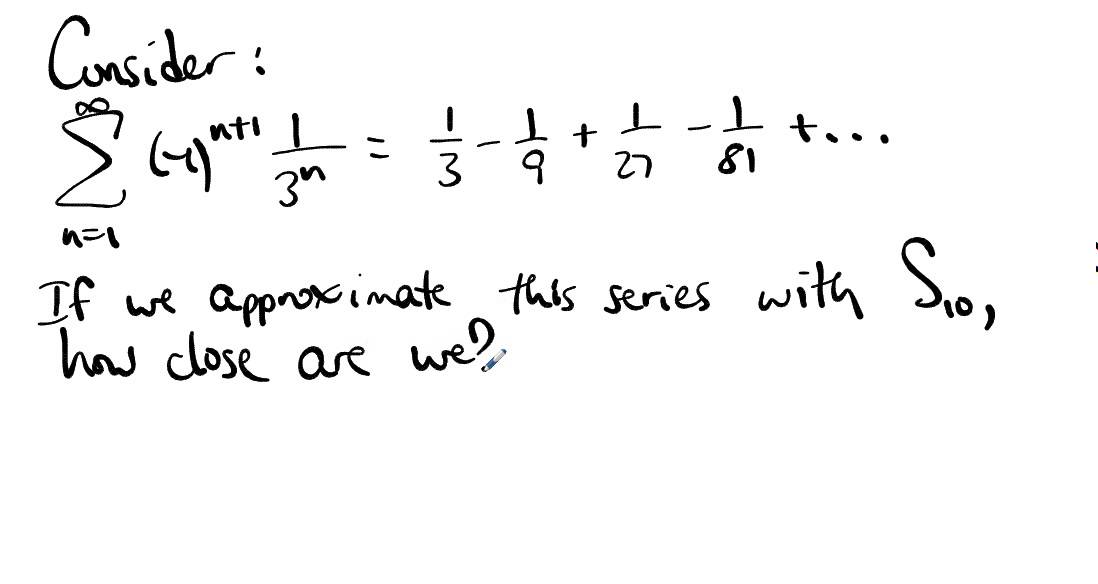 Consider:
∑_{n=1}^{∞} (-1)^{n+1} 1/3^n = 1/3 - 1/9 + 1/27 - 1/81 + ...
If we approximate this series with S_{10},
how close are we?